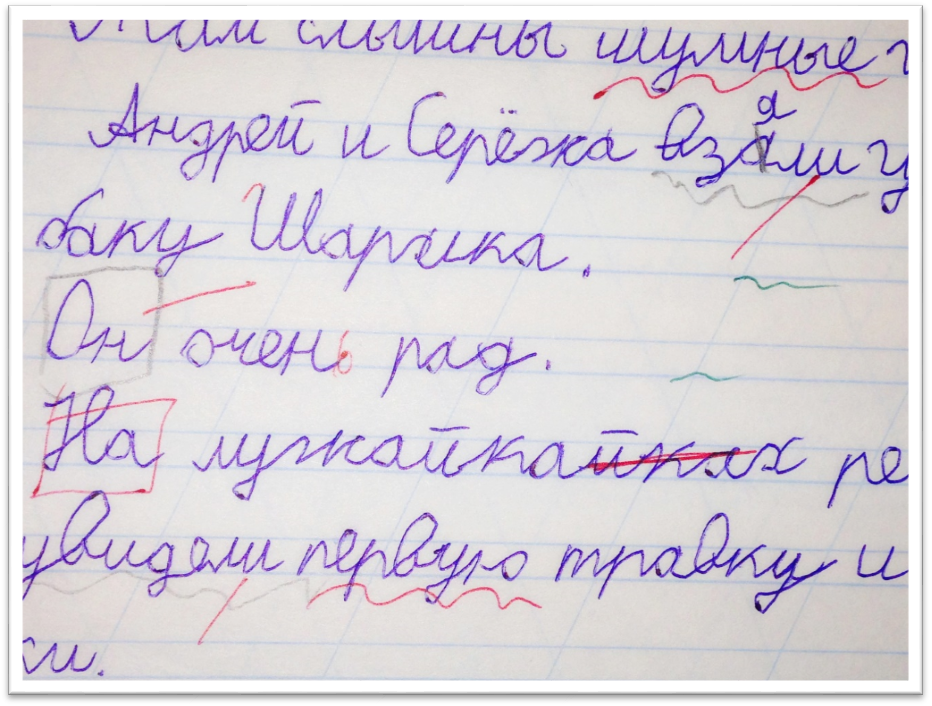 Там слышины шумные г
я
Андрей и Серёжа взали
баку Шарика.
Он очень рад.
На лужайкайках ре
увидели первую травку и
ки.